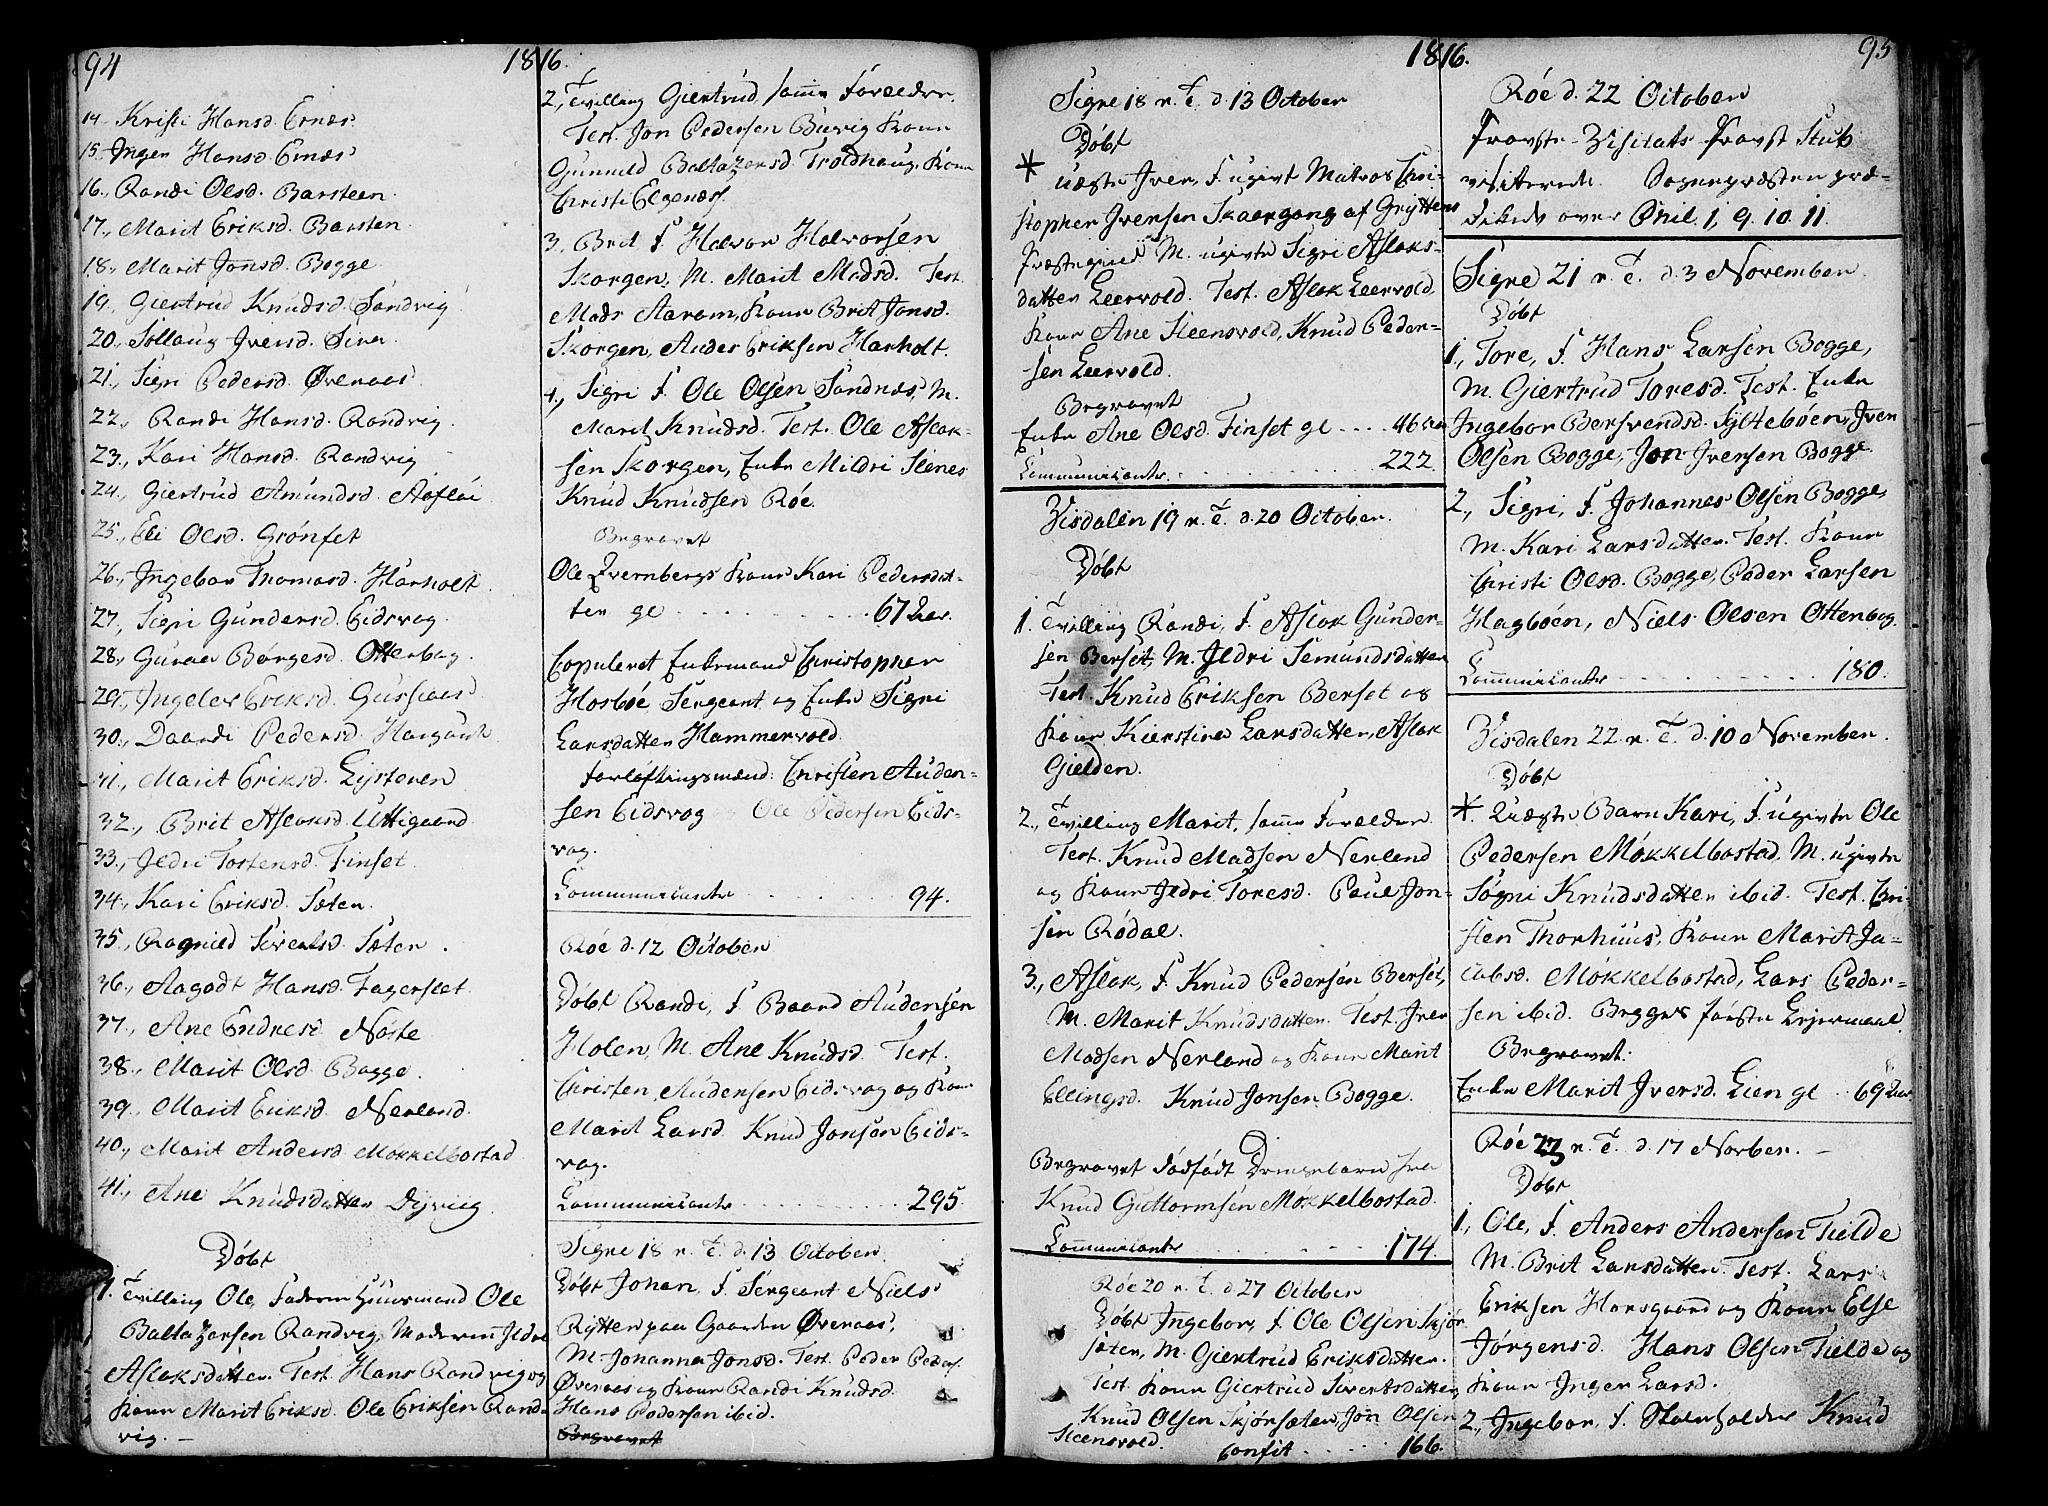 94
1816.
14. Kristi Hansd. Ernæs.
15. Ingen Hansd. Ernæs
16., Randi Olsd. Barsteen.
17., Marit Eriksd. Barsten.
18., Marit Jonsd. Bogge
19., Giertrud Knudsd. Sandvig
20., Sollaug Iversd. Sira.
21., Sigri Pedersd. Øveraas.
22., Randi Hansd. Randvig.
23., Kari Hansd. Randvig
24., Giertrud Amundsd. Aasflåe
25., Eli Olsd. Grønset
26., Ingebor Thomasd. Harholt.
27., Sigri Gundersd. Eidsvog.
28., Guroe Børgesd. Otterbog.
29., Ingelev Eriksd. Gussiaas
30., Daardi Pedersd. Hargaut
31., Marit Eriksd. Lysteren
32., Brit Aslaksd. Uttigaard
33., Ildri Tostensd. Finset.
34., Kari Eriksd. Sæten.
35., Ragnild Siverts d. Sæten.
36., Aagodt Hansd. Fagerslet.
37., Ane Endresd. Nøste
38., Marit Olsd. Bogge.
39., Marit Eriksd. Nerland.
40., Marit Andersd. Mokkelbostad
41., Ane Knudsdatter Dyrvig.
Døbt
1. Tvilling Ole, Faderen Huusmand Ole
Baltazersen Randvig, Moderen Ildri
Aslaksdatter. Test. Hans Randvig og
Kone Marit Eriksd. Ole Eriksen Rand-
vig. —
2., Tvilling Giertrud, samme Forældre.
Test. Jon Pedersen Buvig Kone
Gunnild Baltazersd. Troldhaug. Kone
Christi Elgenæs.
3. Brit F. Halvor Halvorsen
Skorgen, M. Marit Madsd. Test.
Mads Aarøm, Kone Brit Jonsd.
Skorgen, Anders Eriksen Harholt.
4., Sigri F. Ole Olsen Sandnæs, M.
Marit Knudsd. Test. Ole Aslak-
sen Skorgen, Enke Mildri Stenes
Knud Knudsen Røe.
Begravet
Ole Qvernbergs Kone Kari Pedersdat-
ter gl . . . . . . . 67 Aar.
Copuleret Enkemand Christopher
Hosbøe Sergeant og Enke Sigri
Larsdatter Hammervold.
Forløftningsmænd: Christen Auden-
sen Eidsvog og Ole Pedersen Eids-
vog.
Communicanter . . . . . 94.
Røe d. 12 October
Døbt Randi, F. Baard Audensen
Holen, M. Ane Knudsd. Test.
Christen Audensen Eidsvog og Kone
Marit Larsd. Knud Jonsen Eids-
vog.
Communicanter . . . . . 295.
Signe 18 n. T. d. 13 October
Døbt Johan, F. Sergeant Niels
Rytter paa Gaarden Øveraas,
M. Johanna Jonsd. Test. Peder Peders.
Øveraas og Kone Randi Knudsd.
Hans Pedersen ibid.
Begravet
1816.
95
Signe 18 n. T. d. 13 October
Døbt
* Uægte Iver, F. ugivt Matros Chri-
stopher Iversen Skaergang af Gryttens
Præstegield M. ugivte Sigri Aslaks-
datter Leervold. Test. Aslak Leervold,
Kone Ane Steensvold, Knud Peder-
sen Leervold.
Begravet
Enke Ane Olsd. Finset gl . . . . 46 Aar
Communicanter . . . . . 222.
Visdalen 19 n. T. d. 20 October.
Døbt
1. Tvilling Randi, F. Aslak Gunder-
sen Berset, M. Ildri Semundsdatter
Test. Knud Eriksen Berset og
Kone Kierstina Larsdatter, Aslak
Gielden.
2., Tvilling Marit, samme Forældre
Test. Knud Madsen Nerland
og Kone Ildri Toresd. Poul Jon-
sen Rødal.
3., Aslak, F. Knud Pedersen Berset,
M. Marit Knudsdatter. Test. Iver
Madsen Nerland og Kone Marit
Ellingsd. Knud Jonsen Bogge.
Begravet dødfødt Drengebarn fra
Knud Guttormsen Mokkelbostad.
Communicanter . . . . . 174.
Røe 20 n. T. d. 27 October
Døbt Ingebor, F. Ole Olsen Skjør-
sæten, M. Giertrud Eriksdatter.
Test. Kone Giertrud Sivertsdatter
Knud Olsen Skjørsæten, Jon Olsen
Steensvold. Confit . . . . 166.
Røe d. 22 October
Provste-Visitats. Provst Stub
visiterede. Sognepræsten præ-
dikede over Phil. 1, 9. 10. 11.
Signe 21 n. T. d. 3 November.
Døbt
1., Tore, F. Hans Larsen Bogge,
M. Giertrud Toresd. Test. Enke
Ingebor Bersvendsd. Syltebøen, Iver
Olsen Bogge, Jon Iversen Bogge.
2., Sigri, F. Johannes Olsen Bogge,
M. Kari Larsdatter. Test. Kone
Christi Olsd. Bogge, Peder Larsen
Hagbøen, Niels Olsen Ottenbog.
Communicanter . . . . . 180.
Visdalen 22. n. T. d. 10 November.
Døbt
*. Uægte Barn Kari, F. ugivte Ole
Pedersen Mokkelbostad. M. ugivte
Sogni Knudsdatter ibid. Test. Chri-
sten Thorhuus, Kone Marit Ja-
cobsd. Mokkelbostad, Lars Peder-
sen ibid. Begges første Leiermaal.
Begravet.
Enke Marit Iversd. Lien gl . . 69 Aar
Røe 23 n. T. d. 17 Novber. —
Døbt
1., Ole, F. Anders Andersen Tielde
M. Brit Larsdatter. Test. Lars
Eriksen Horsgaard og Kone Else
Jørgensd. Hans Olsen Tielde og
Kone Ingen Larsd.
2., Ingebor, F. Skoleholder Knud